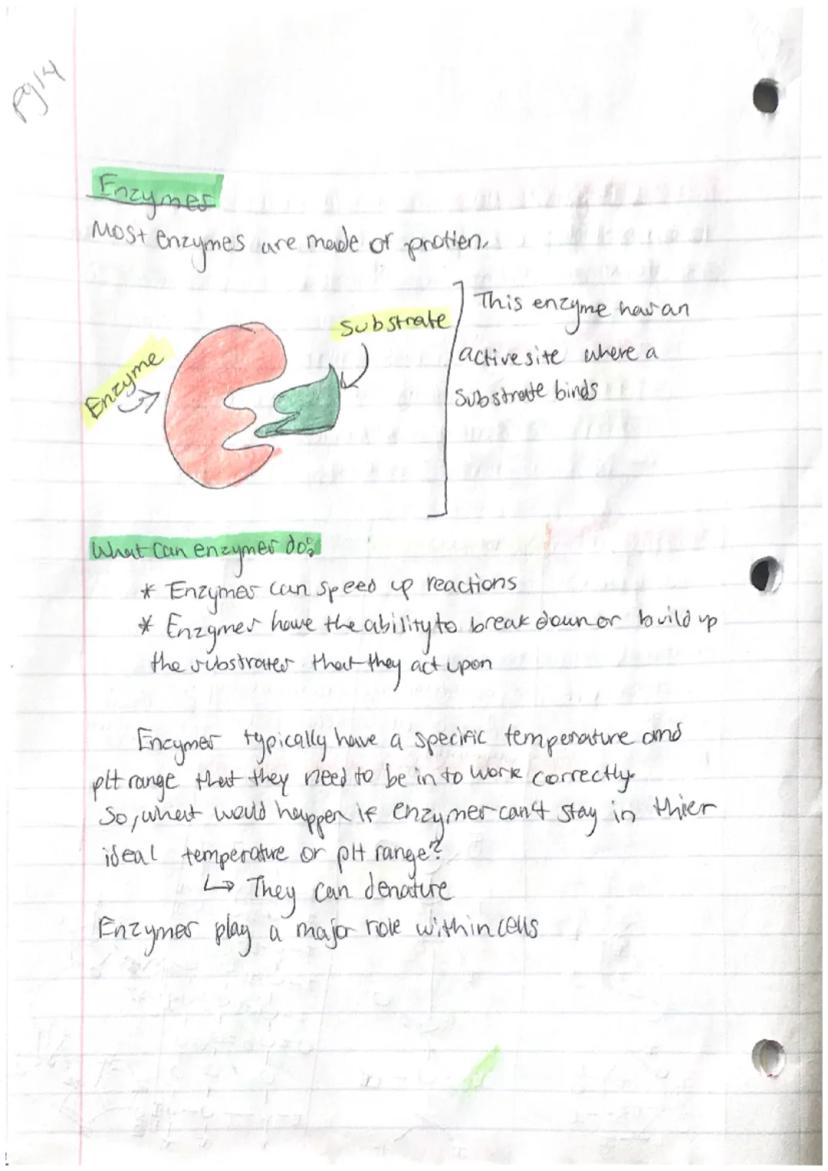 pg14
Enzymes
Most enzymes are made of protien.
Substrate
Enzyme
This enzyme has an
active site where a
Substrate binds
What can enzymes do?
* Enzymes can speed up reactions
* Enzymes have the ability to break down or build up
the substrates that they act upon
Enzymes typically have a specific temperature and
pH range that they need to be in to work correctly.
So, what would happen if enzymes can't stay in thier
ideal temperature or pH range?
↳ They can denature
Enzymes play a major role within cells